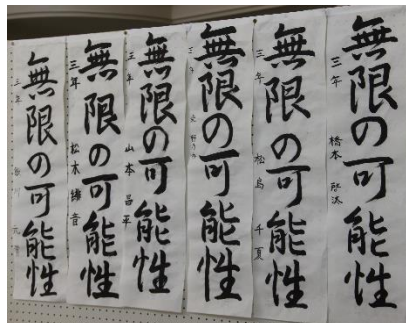 無限の可能性
三年 橋本
無限の可能性
三年 松島 千夏
無限の可能性
三年
無限の可能性
三年 山本 昌平
無限の可能性
三年 松木 音
無限の可能性
三年